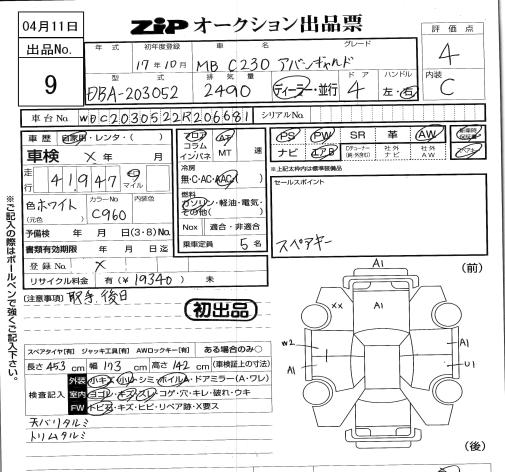 04月11日
ZIP オークション出品票
出品No.
9
評価点
4
内装
C
年式 初年度登録 車名 グレード
17年10月 MB C230 アバンギャルド
型式 排気量 ドア ハンドル
DBA-203052 2490 ディーラー・並行 4 左・右
車台No. WDC2030522R206681 シリアルNo.
車歴 自家用・レンタ・( )
車検 X 年 月
走行 41,947 キロ マイル
色 ホワイト (元色) カラーNo. C960 内装色
予備検 年 月 日(3・8)No.
書類有効期限 年 月 日迄
登録No. X
リサイクル料金 有(¥19340) 未
フロア コラム インパネ AT MT 速
冷房
無・C・AC・AAC
燃料
ガソリン・軽油・電気・その他( )
Nox 適合・非適合
乗車定員 5 名
PS PW SR 革 AW 新車時保証書
ナビ エアB 社外ナビ 社外AW
※上記太枠内は標準装備品
セールスポイント
スペアキー
(注意事項) 取手後日
初出品
スペアタイヤ[有] ジャッキ工具[有] AWロックキー[有] ある場合のみ○
長さ 453 cm 幅 173 cm 高さ 142 cm (車検証上の寸法)
検査記入
外装 小キズ・小凹・シミ・ホイルA・ドアミラー(A・ワレ)
室内 ヨゴレ・キズ・スレ・コゲ・穴・キレ・破れ・ウキ
FW トビ石・キズ・ヒビ・リペア跡・X要ス
天バリタルミ
トリムタルミ
(前)
A1
XX A1
W2 A1
A1 U1
A1
(後)
※ご記入の際はボールペンで強くご記入下さい。